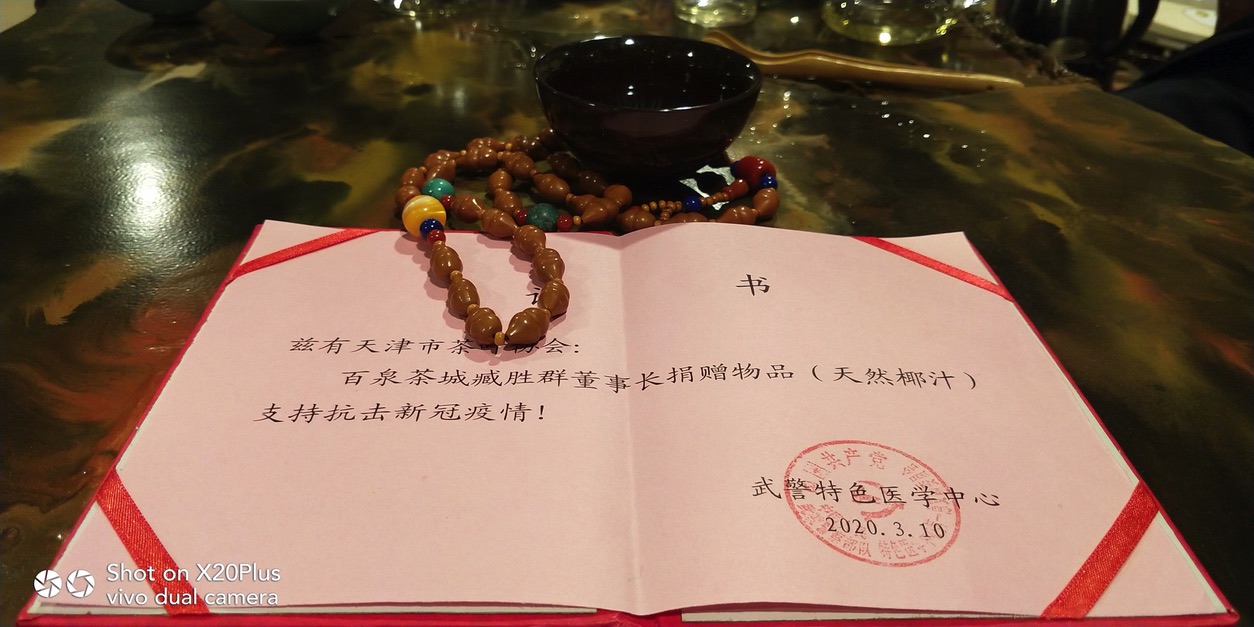 书
兹有天津市茶 协会：
百泉茶城臧胜群董事长捐赠物品（天然椰汁）
支持抗击新冠疫情！
共产党
武警特色医学中心
2020.3.10
Shot on X20Plus
vivo dual camera